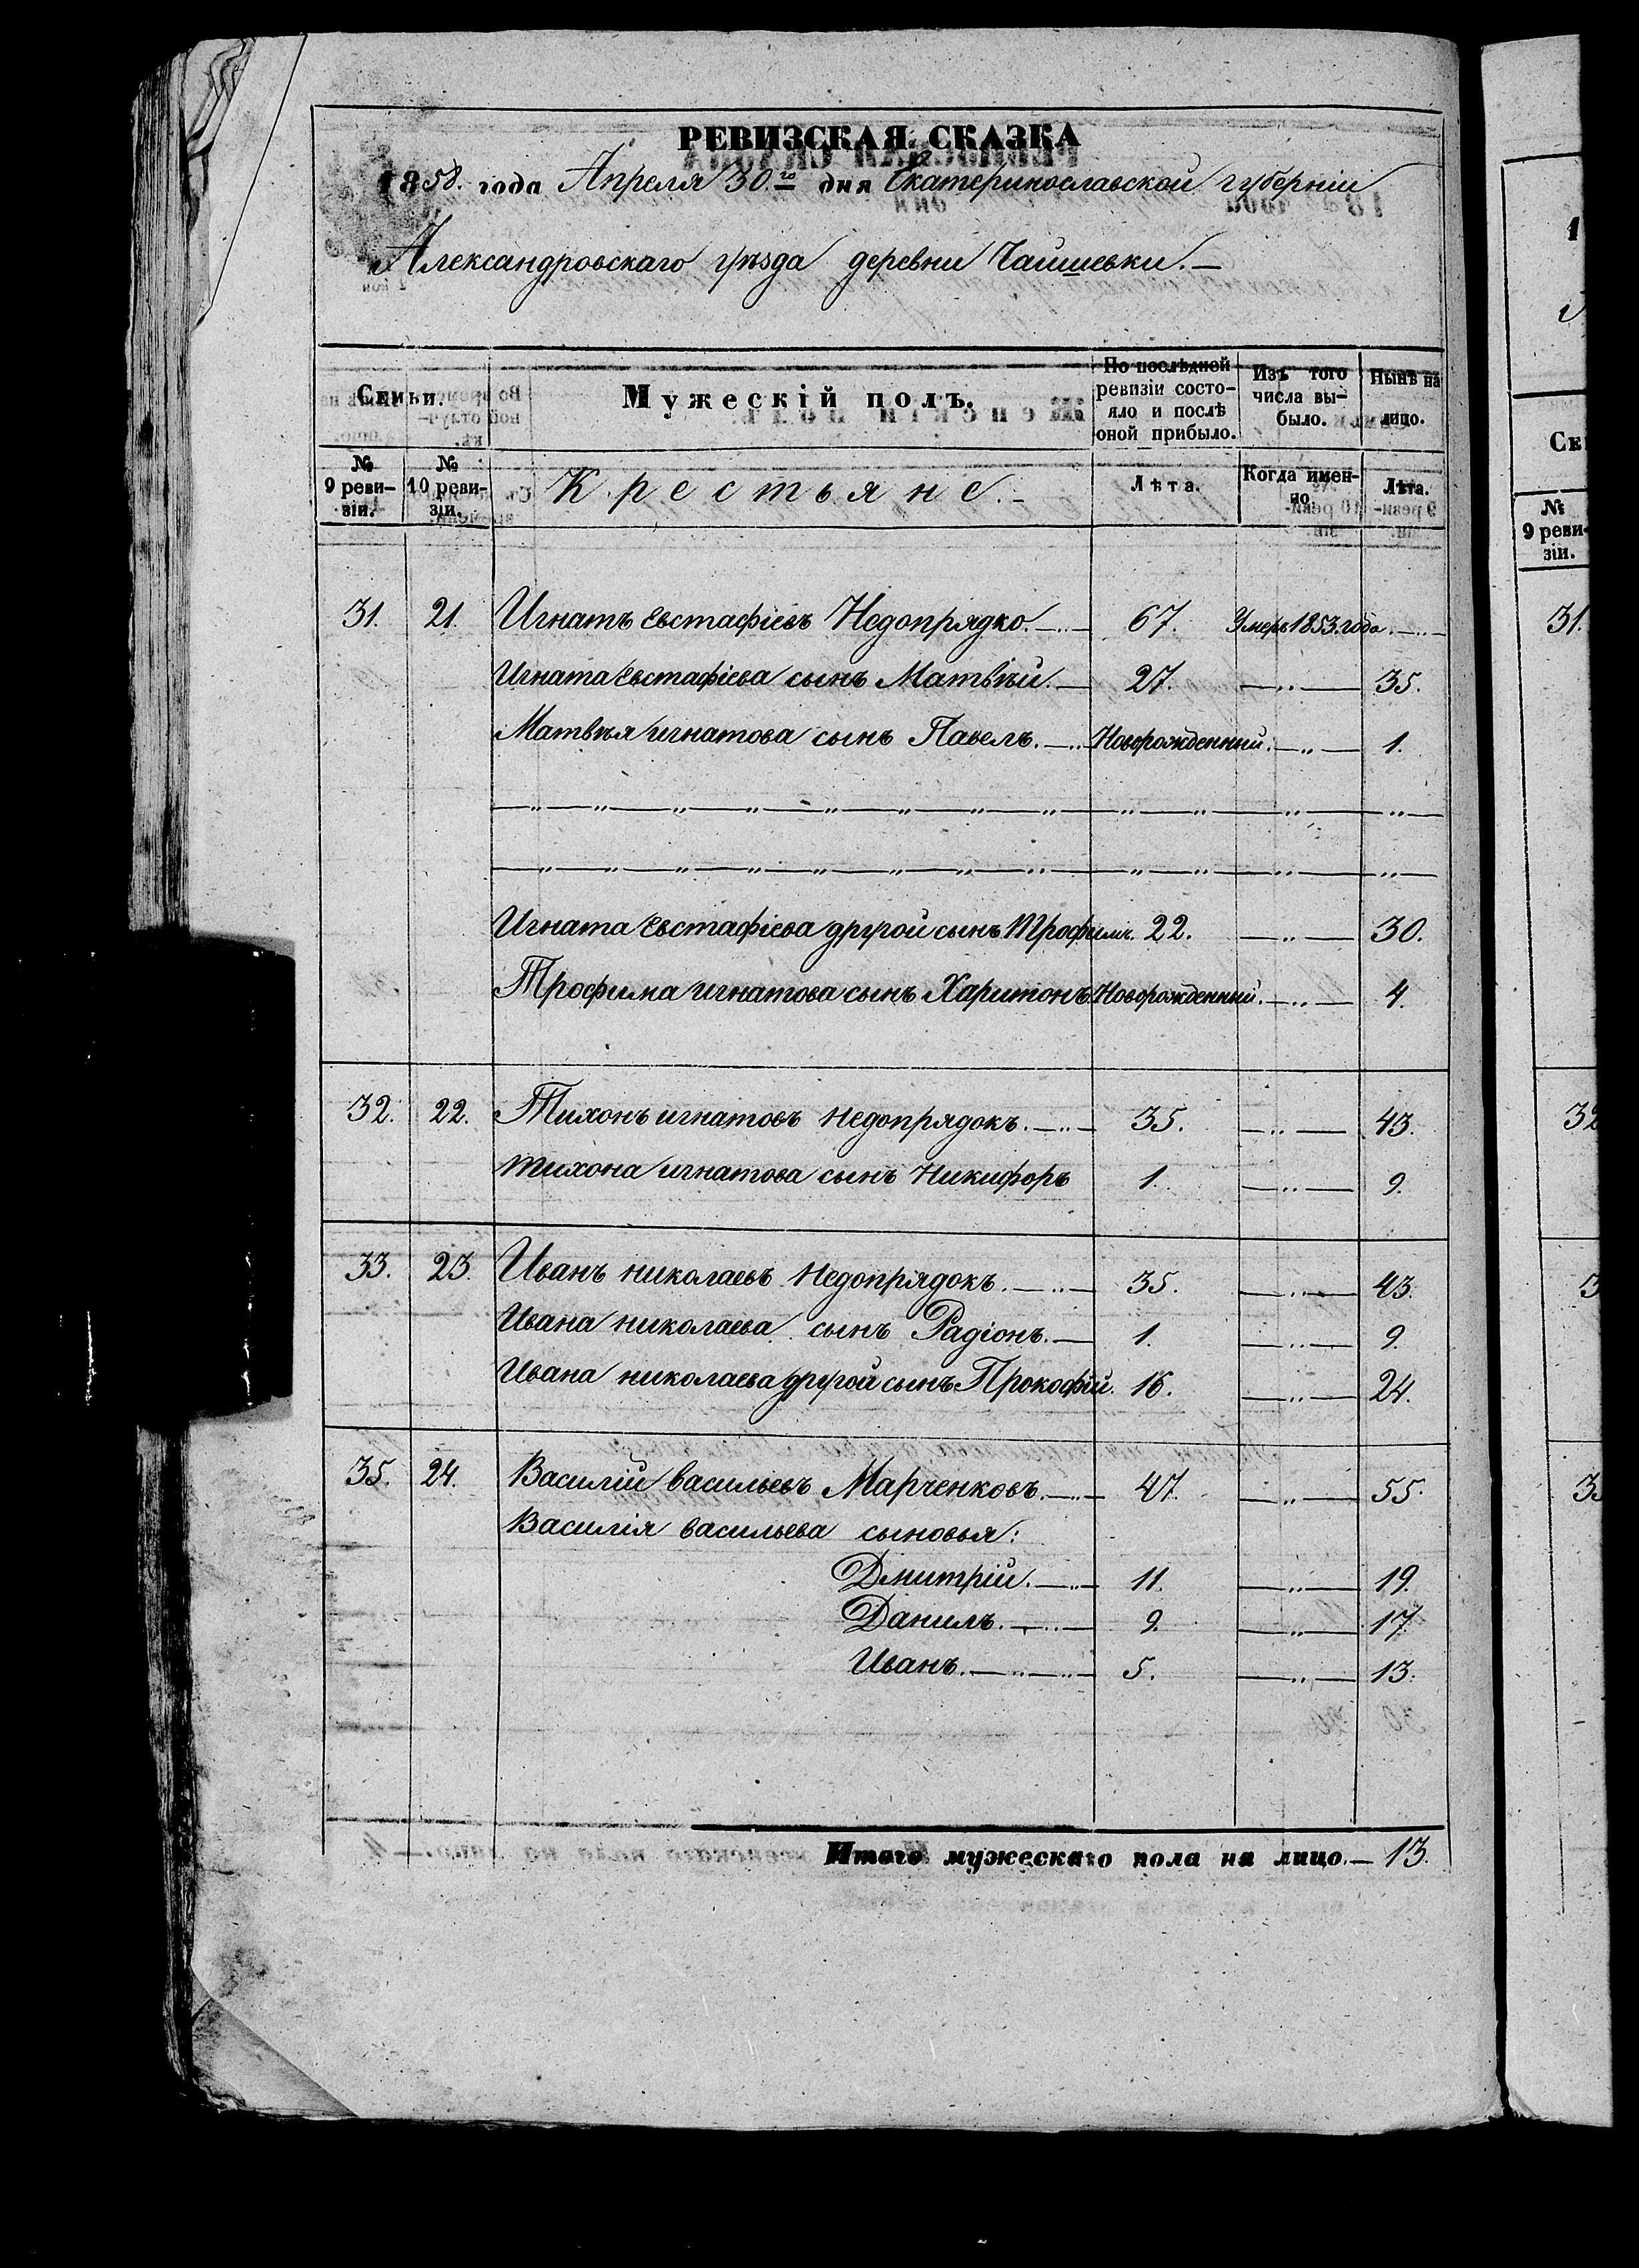 РЕВИЗСКАЯ СКАЗКА
1858. года Апреля 30.го дня Екатеринославской губерніи
Александровскаго уѣзда деревни
Семьи. Мужескій полъ. По послѣдней ревизіи состояло и послѣ оной прибыло. Изъ того числа выбыло. Нынѣ на лицо.
№ 9 ревизіи. № 10 ревизіи. Крестьяне.- Лѣта. Когда именно. Лѣта.
31. 21. Игнатъ Евстафіевъ Недопрядко. 67. Умеръ 1853. года.
Игната Евстафіева сынъ Матвѣй. 27. 35.
Матвѣя игнатова сынъ Павелъ. Новорожденный. 1.
Игната Евстафіева другой сынъ Трофимъ. 22. 30.
Трофима игнатова сынъ Харитонъ Новорожденный. 4.
32. 22. Тихонъ игнатовъ Недопрядокъ. 35. 43.
Тихона игнатова сынъ Никифоръ 1. 9.
33. 23. Иванъ николаевъ Недопрядокъ. 35. 43.
Ивана николаева сынъ Радіонъ. 1. 9.
Ивана николаева другой сынъ Прокофій. 16. 24.
35. 24. Василій васильевъ Марченковъ. 47. 55.
Василія васильева сыновья:
Дмитрій. 11. 19.
Данилъ. 9. 17.
Иванъ. 5. 13.
Итого мужескаго пола на лицо. 13.
№ 9 ревизіи.
31.